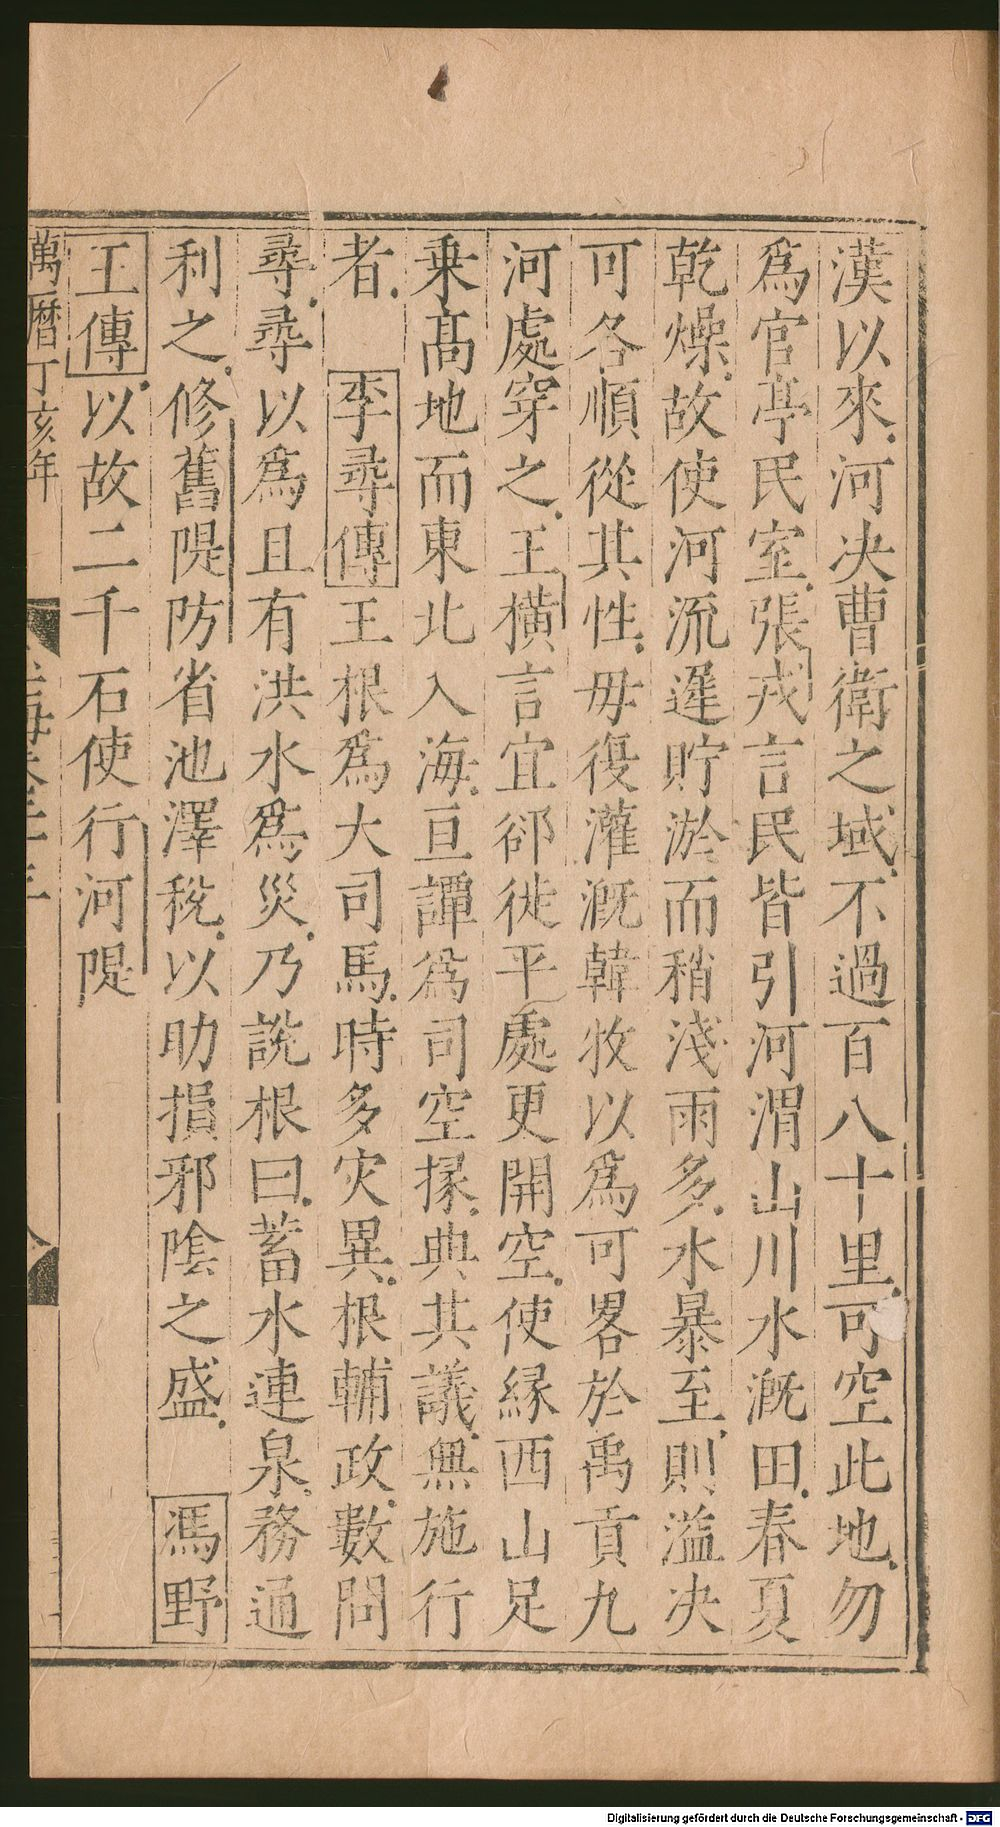 漢以來河决曹衛之域不過百八十里可空此地勿
爲官亭民室張戎言民皆引河渭山川水漑田春夏
乾燥故使河流遲貯淤而稍淺雨多水暴至則溢决
可各順從其性毋復灌漑韓牧以爲可畧於禹貢九
河處穿之王橫言宜郤徙平處更開空使縁西山足
乗髙地而東北入海亘譚爲司空掾典其議無施行
者李尋傳王根爲大司馬時多灾異根輔政數問
尋尋以爲且有洪水爲災乃說根曰蓄水連泉務通
利之修舊隄防省池澤稅以助損邪隂之盛馮野
王傳以故二千石使行河隄
萬曆丁亥年
Digitalisierung gefördert durch die Deutsche Forschungsgemeinschaft - DFG